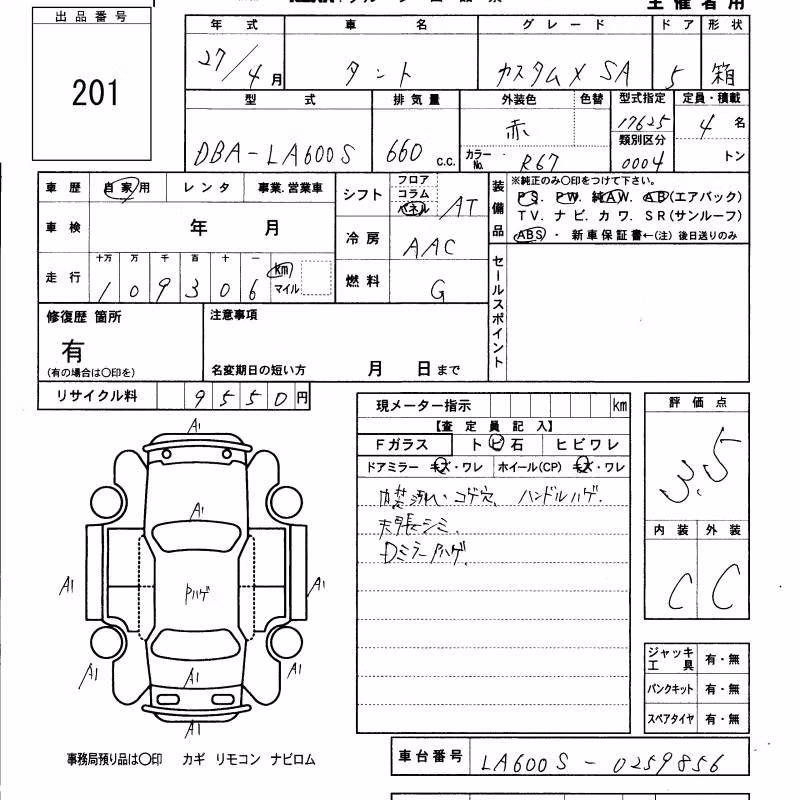 主催者用
出品番号
201
年式 車名 グレード ドア 形状
27/4月 タント カスタムX SA 5 箱
型式 排気量 外装色 色替 型式指定 定員・積載
DBA-LA600S 660 C.C. 赤 17625 4名
カラーNo. R67 類別区分 0004 トン
車歴 自家用 レンタ 事業.営業車
シフト フロア コラム パネル AT
装備品 ※純正のみ○印をつけて下さい。
PS. PW. 純AW. AB(エアバック)
TV. ナビ. カワ. SR(サンルーフ)
ABS・新車保証書←(注)後日送りのみ
車検 年 月
冷房 AAC
走行 十万 万 千 百 十 一
109306 km マイル
燃料 G
セールスポイント
修復歴 箇所
有
(有の場合は○印を)
注意事項
名変期日の短い方 月 日まで
リサイクル料 9550円
現メーター指示 km
【査定員記入】
Fガラス トビ石 ヒビワレ
ドアミラー キズ・ワレ ホイール(CP) キズ・ワレ
内装汚れ.コゲ穴、ハンドルハゲ.
天張シミ.
Dミラーハゲ.
評価点
3.5
内装 外装
C C
A1
A1
A1
A1
Pハゲ
A1
A1
A1
ジャッキ工具 有・無
パンクキット 有・無
スペアタイヤ 有・無
事務局預り品は○印 カギ リモコン ナビロム
車台番号 LA600S-0259856